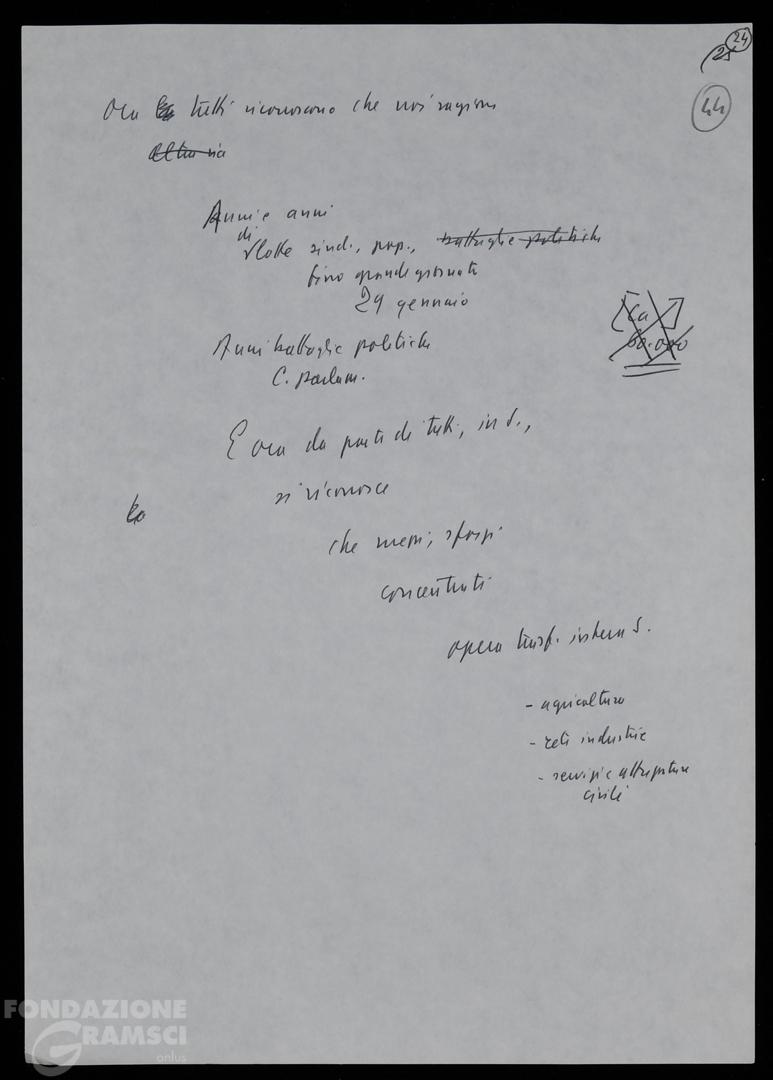 24
25
44
Ora tutti riconoscono che noi ragione
Altra via
Anni e anni
di
lotte sind., pop., battaglie politiche
fino grande giornata
29 gennaio
Anni battaglie politiche
C. parlam.
[Ca]
60.000
E ora da parte di tutti, in S.,
si riconosce
che mezzi, sforzi
concentrati
opera trasf. intera S.
- agricoltura
- reti industrie
- servizi e attrezzature
civili
FONDAZIONE
GRAMSCI
onlus